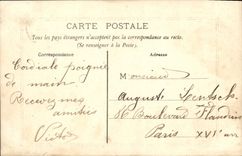 CARTE POSTALE
Tous les pays étrangers n'acceptent pas la correspondance au recto.
(Se renseigner à la Poste).
Correspondance
Adresse
Cordiale poignée
de main
Recevez mes
amitiés
Monsieur
Auguste
Boulevard Flandrin
Paris XVIe arr